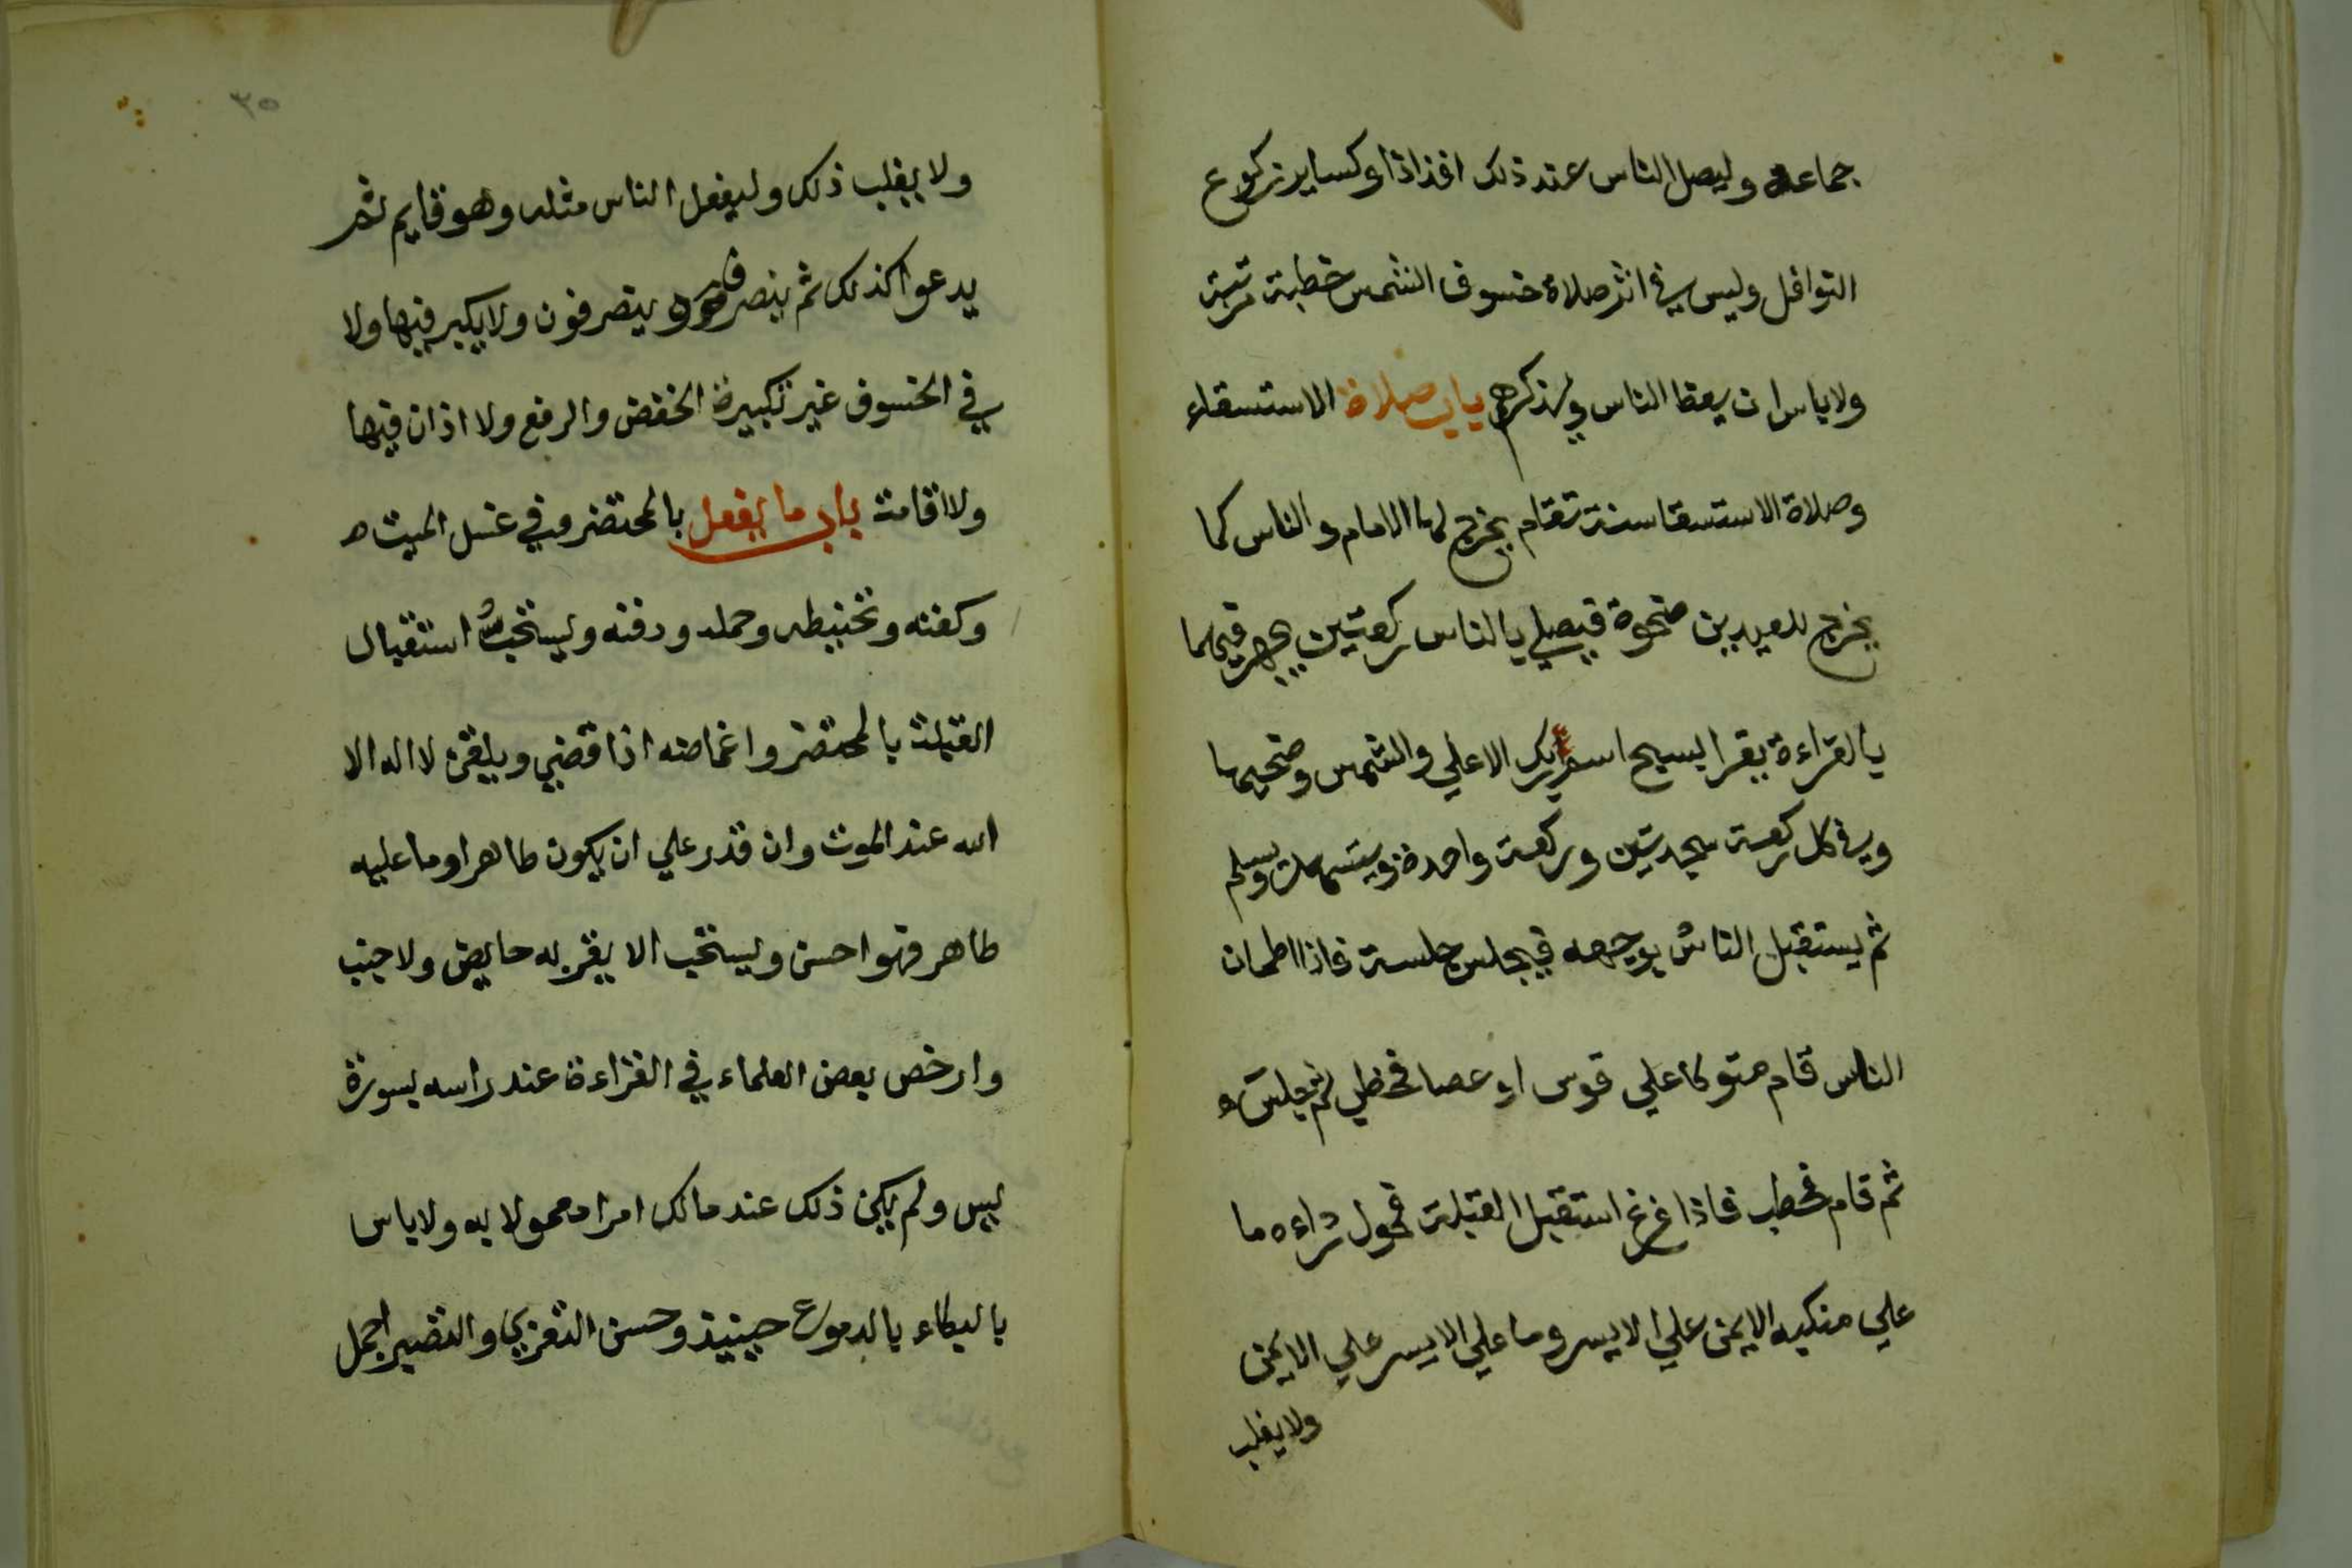 جماعة وليصل الناس عند ذلك افذاذا وكساير ركوع
النوافل وليس في اثر صلاة خسوف الشمس خطبة مرتبة
ولا باس ان يعظ الناس ويذكرهم باب صلاة الاستسقاء
وصلاة الاستسقا سنة تقام يخرج لها الامام والناس كما
يخرج للعيدين ضحوة فيصلي بالناس ركعتين يجهر فيهما
بالقراءة يقرا بسبح اسم ربك الاعلي والشمس وضحيها
وفي كل ركعة سجدتين وركعة واحدة ويتشهد ويسلم
ثم يستقبل الناس بوجهه فيجلس جلسة فاذا اطمان
الناس قام متوكا علي قوس او عصا فخطب ثم جلس
ثم قام فخطب فاذا فرغ استقبل القبلة فحول رداءه ما
علي منكبه الايمن علي الايسر وما علي الايسر علي الايمن
ولا يقلب
٣٥
ولا يقلب ذلك وليفعل الناس مثله وهو قايم ثم
يدعوا كذلك ثم ينصرف وينصرفون ولا يكبر فيها ولا
في الخسوف غير تكبيرة الخفض والرفع ولا اذان فيها
ولا اقامة باب ما يفعل بالمحتضر وفي غسل الميت
وكفنه وتحنيطه وحمله ودفنه ويستحب استقبال
القبلة بالمحتضر واغماضه اذا قضي ويلقن لا اله الا
الله عند الموت وان قدر علي ان يكون طاهرا وما عليه
طاهر فهو احسن ويستحب الا يقربه حايض ولا جنب
وارخص بعض العلماء في القراءة عند راسه بسورة
يس ولم يكن ذلك عند مالك امرا معمولا به ولا باس
بالبكاء بالدموع حينيذ وحسن التعزي والتصبر اجمل